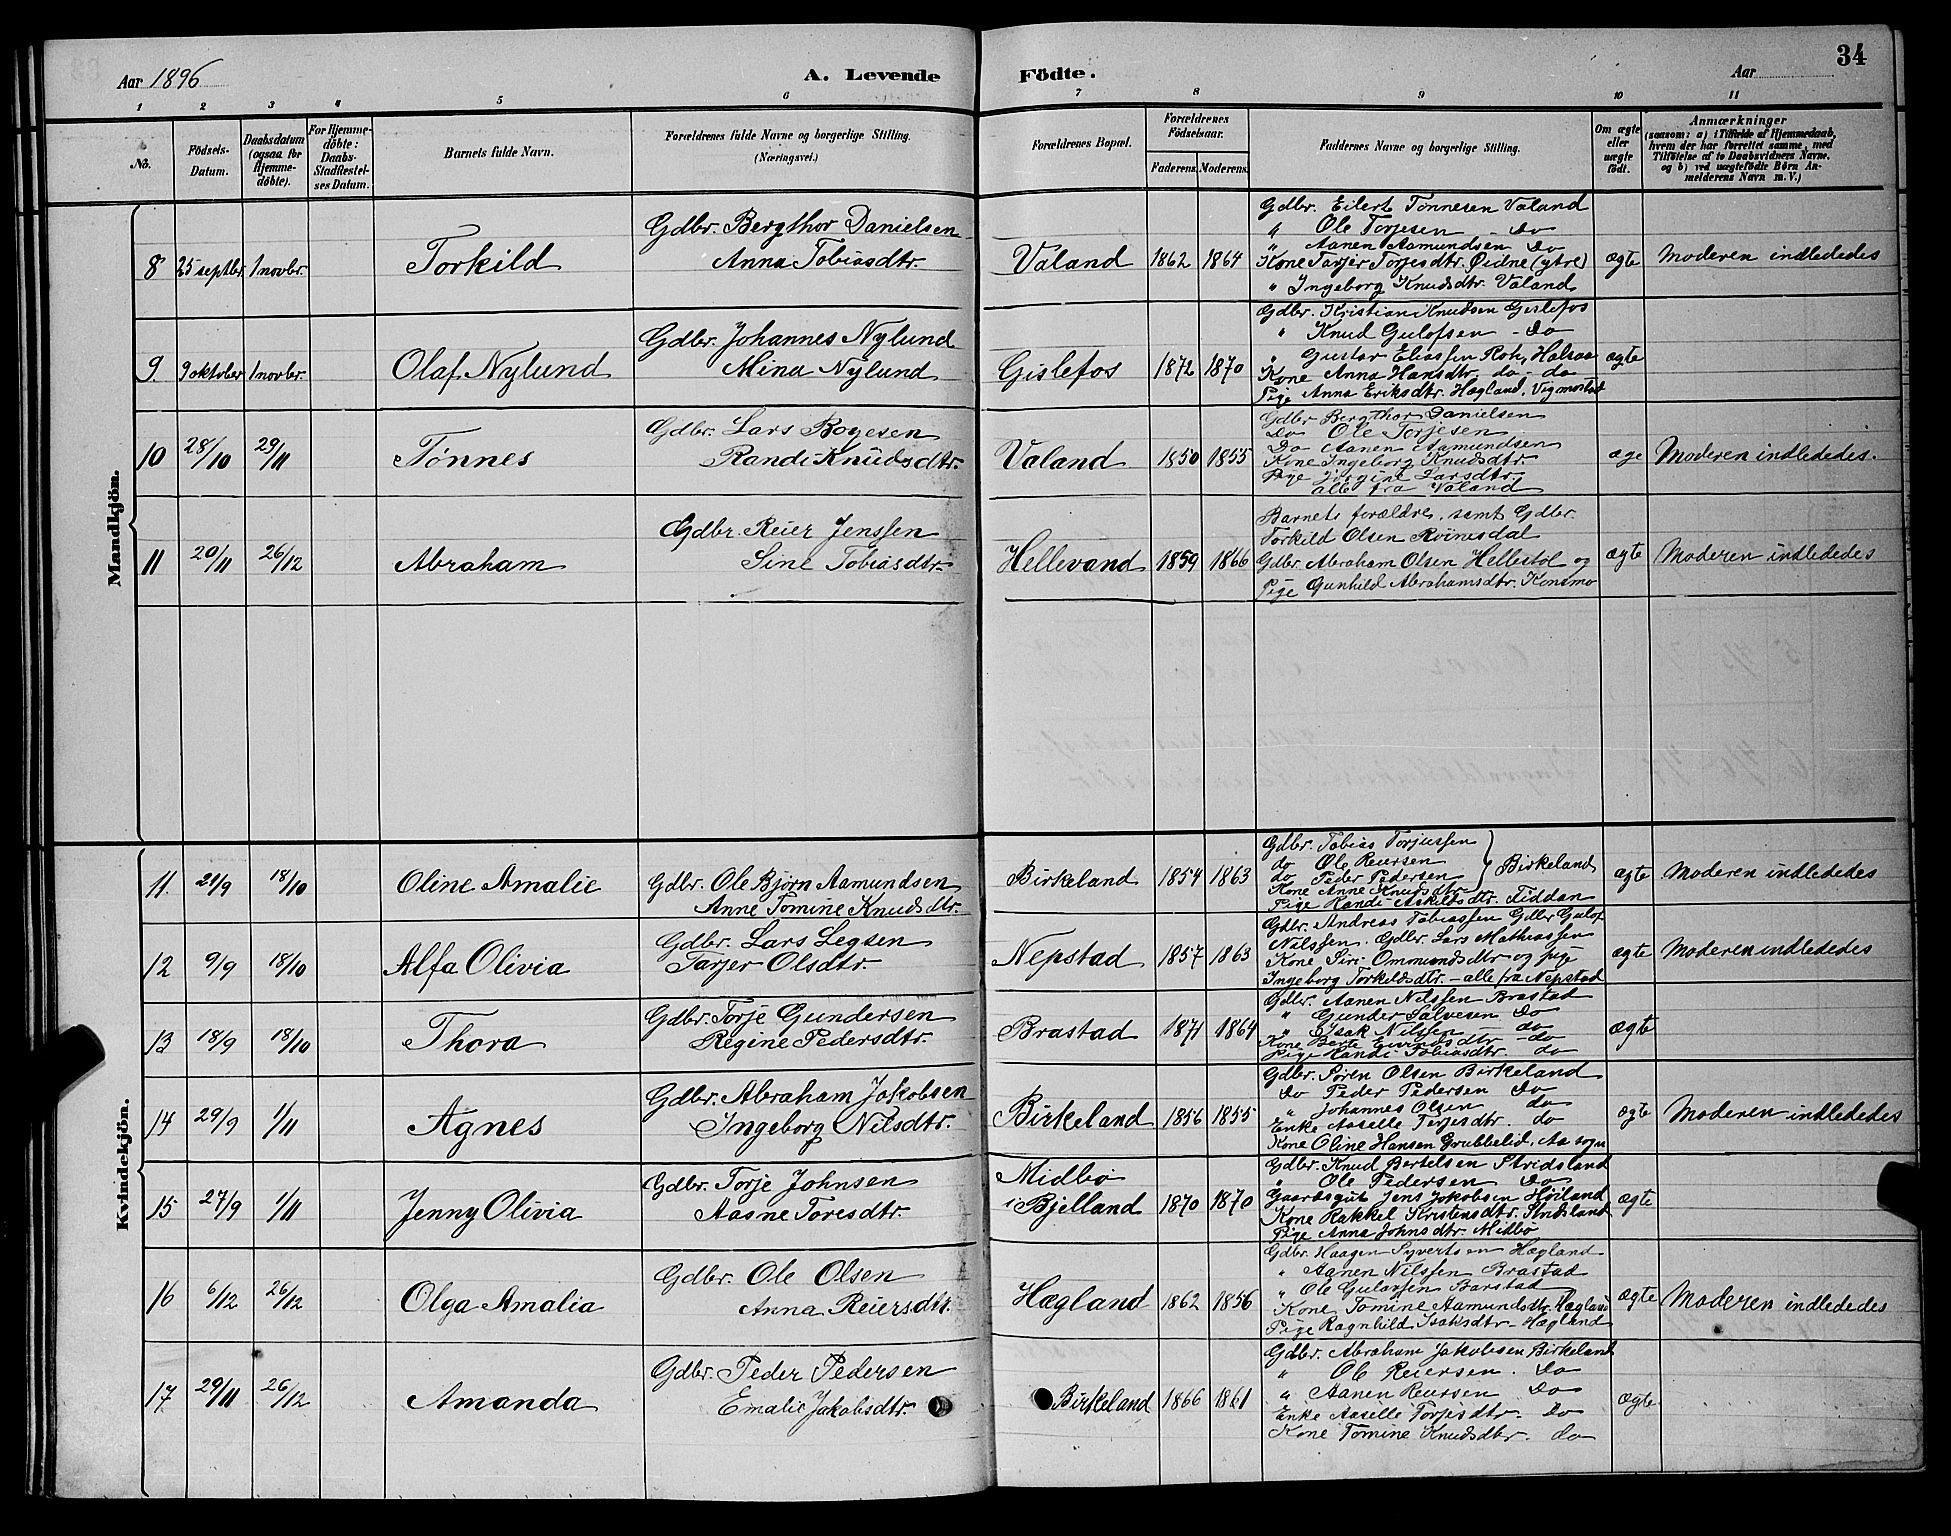 34
Aar 1896 A. Levende Födte. Aar
1 2 3 4 5 6 7 8 9 10 11
No.
Födsels-Datum.
Daabsdatum (ogsaa for Hjemme-döbte).
For Hjemme-döbte: Daabs-Stadfæstel-ses Datum.
Barnets fulde Navn.
Forældrenes fulde Navne og borgerlige Stilling. (Næringsvei.)
Forældrenes Bopæl.
Forældrenes Födselsaar.
Faderens. Moderens.
Faddernes Navne og borgerlige Stilling.
Om ægte eller uægte födt.
Anmærkninger
(saasom: a) i Tilfælde af Hjemmedaab, hvem der har forrettet samme, med Tilföielse af to Daabsvidners Navne, og b) ved uægtefödte Börn An-melderens Navn m. V.)
Mandkjön.
8 25 septbr. 1 novbr. Torkild
Gdbr. Bergthor Danielsen
Anna Tobiasdtr.
Valand 1862 1864
Gdbr. Eilert Tönnesen Valand
" Ole Torjesen - do
" Aanen Aamundsen do
Kone Tarjer Torjesdtr. Øidne (ytre)
" Ingeborg Knudsdtr. Valand
ægte Moderen indlededes
9. 9 oktober 1 novbr. Olaf Nylund
Gdbr. Johannes Nylund
Mina Nylund
Gislefos 1872 1870
Gdbr. Kristian Knudsen Gislefos
" Knud Gulofsen - do
" Gustav Eliassen Roh, Halsaa
Kone Anna Hansdtr. do - do
Pige Anna Eriksdtr. Hægland, Vigmostad
ægte
10 28/10 29/11 Tönnes
Gdbr. Lars Bogesen
Randi Knudsdtr.
Valand 1850 1855
Gdbr Bergthor Danielsen
Do Ole Torjesen
Do Aanen Aamundsen
Kone Ingeborg Knudsdtr.
Pige Larsdtr.
alle fra Valand
æge Moderen indlededes.
11 20/11 26/12 Abraham
Gdbr. Reier Jenssen
Sine Tobiasdtr.
Hellevand 1859 1866
Barnets forældre, samt Gdbr.
Torkild Olsen Kvinesdal
Gdbr. Abraham Olsen Hellestøl og
Pige Gunhild Abrahamsdtr. Konsmo
ægte Moderen indlededes
Kvindekjön.
11. 21/9 18/10 Oline Amalie
Gdbr. Ole Bjørn Aamundsen
Anne Tomine Knudsdtr.
Birkeland 1854 1863
Gdbr. Tobias Torjussen
do Ole Reiersen
do Peder Pedersen } Birkeland
Kone Anne Knudsdtr
Pige Randi Askildsdtr. Fiddan
ægte Moderen indlededes
12 9/9 18/10 Alfa Olivia
Gdbr. Lars Legsen
Tarjer Olsdtr.
Nepstad 1857 1863
Gdbr. Andreas Tobiassen Gdbr Gulof
Nilssen. Gdbr. Lars Mathiassen
Kone Siri Ommundsdtr og pige
Ingeborg Torkeldsdtr. - alle fra Nepstad
ægte Moderen indlededes
13 18/9 18/10 Thora
Gdbr. Torje Gundersen
Regine Pedersdtr.
Brastad 1871 1864
Gdbr. Aanen Nilssen Brastad
" Gunder Salvesen Do
" Isak Nilssen - do
Kone Berte Eivindsdtr - do
Pige Randi Tobiasdtr. do
ægte
14 29/9 1/11 Agnes
Gdbr. Abraham Jakobsen
Ingeborg Nilsdtr.
Birkeland 1856 1855
Gdbr. Søren Olsen Birkeland
Do Peder Pedersen Do
" Johannes Olsen do
Enke Aaselle Terjesdtr. do
Kone Oline Hansen Grubbelid, Aa sogn
ægte Moderen indlededes
15 27/9 1/11 Jenny Olivia
Gdbr. Torje Johnsen
Aasne Toresdtr.
Midbø
i Bjelland 1870 1870
Gdbr. Knud Bertelsen Stridsland
" Ole Pedersen Do
Gaardsgut Jens Jakobsen Høiland
Kone Rakkel Kristensdtr. Stridsland
Pige Anna Johnsdtr. Midbø
ægte
16 6/12 26/12 Olga Amalia
Gdbr. Ole Olsen
Anna Reiersdtr.
Hægland 1862 1856
Gdbr. Haagen Syvertsen Hægland
" Aanen Nilssen Brastad
" Ole Gulovsen Barstad
Kone Tomine Aamundsdtr. Hægland
Pige Ragnhild Isaksdtr - Hægland
ægte Moderen indlededes
17 29/11 26/12 Amanda
Gdbr. Peder Pedersen
Emalie Jakobsdtr.
Birkeland 1866 1861
Gdbr. Abraham Jakobsen Birkeland
" Ole Reiersen. Do
" Aanen Reiersen Do
Enke Aaselle Torjesdtr. Do
Kone Tomine Knudsdtr. do
ægte